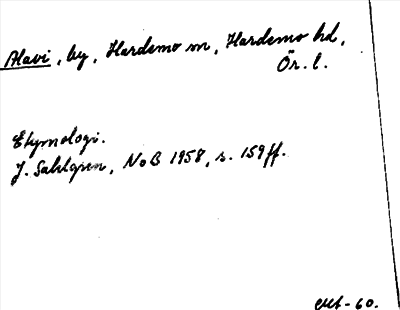 Alavi, by, Hardemo sn, Hardemo hd,
Ör. l.
Etymologi.
J. Sahlgren, NoB 1958, s. 159 ff.
-60.